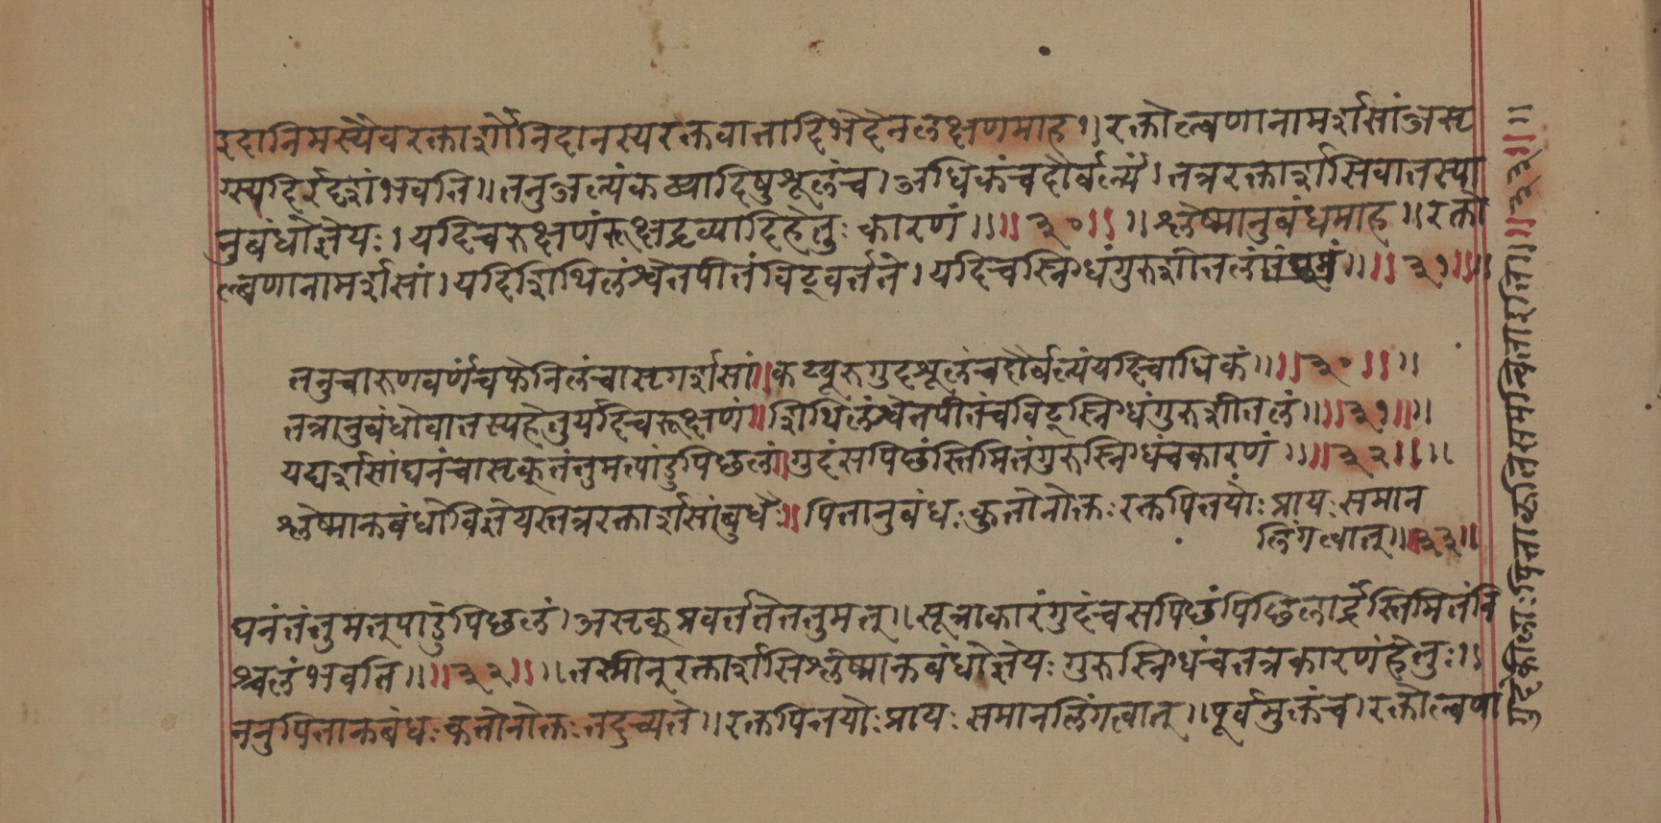 इदानिमस्यैवरक्तार्शोनिदानस्यरक्तवातादिभेदेनलक्षणमाह।। रक्तोल्वणानामर्शसांअसृ
ग्स्यदिर्ईदृशंभवति॥ तनुअल्पंकट्यादिषुशूलंच। अधिकंचदौर्बल्यं। तत्ररक्तार्शसिवातस्या
नुबंधोज्ञेयः। यदिचरूक्षणंरूक्षद्रव्यादिहेतुः कारणं॥॥३०॥॥ श्लेष्मानुबंधमाह॥ रक्तो
ल्वणानामर्शसां। यदिशिथिलंश्वेतपीतंविट्वर्तते। यदिचस्निग्धंगुरुशीतलं॥॥३१॥॥
तनुचारुणवर्णंचफेनिलंचासृगर्शसां॥ कट्यूरुगुदशूलंचदौर्बल्यंयदिचाधिकं॥॥३०॥॥
तत्रानुबंधोवातस्यहेतुर्यदिचरूक्षणं॥ शिथिलंश्वेतपीतंचविट्स्निग्धंगुरुशीतलं॥॥३१॥॥
यद्यर्शसांघनंचासृक्तंतुमत्पांडुपिछलं॥ गुदंसपिछंस्तिमितंगुरुस्निग्धंचकारणं॥॥३२॥॥
श्लेष्मानुबंधोविज्ञेयस्तत्ररक्तार्शसांबुधैः॥ पित्तानुबंधः कुतोनोक्तः रक्तपित्तयोः प्रायः समान
लिंगत्वात्॥३३॥
घनंतंतुमत्पांडुपिछलं। असृक्प्रवर्ततेतंतुमत्॥ सूत्राकारंगुदंचसपिछंपिछिलार्द्रंस्तिमितंनि
श्चलंभवति॥॥३२॥॥ तस्मीन्रक्तार्शसिश्लेष्मानुबंधोज्ञेयः गुरुस्निग्धंचतत्रकारणंहेतुः॥
ननुपित्तानुबंधः कुतोनोक्तः तदुच्यते॥ रक्तपित्तयोः प्रायः समानलिंगत्वात्॥ पूर्वमुक्तंच। रक्तोल्वणा
गुदेकीलाः पित्ताकृतिसमन्विताइति॥॥३३॥॥